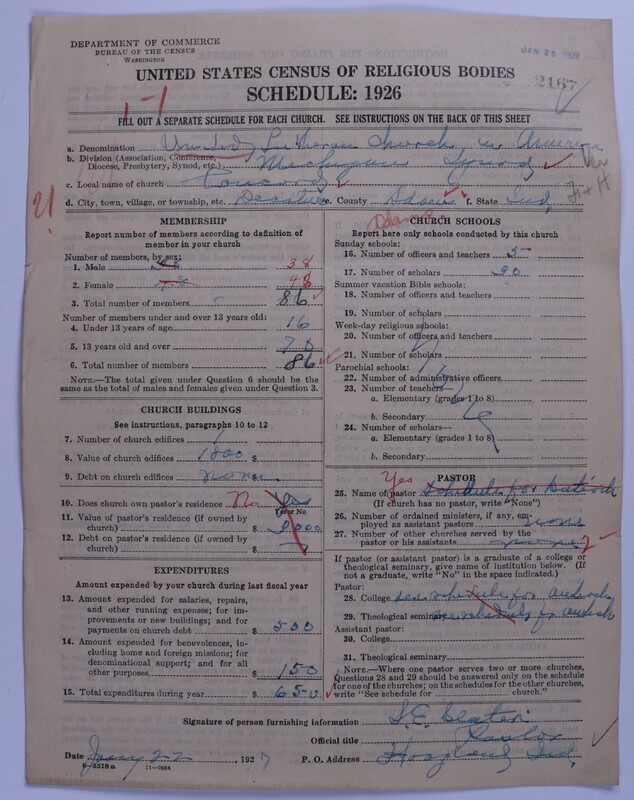 DEPARTMENT OF COMMERCE
BUREAU OF THE CENSUS
WASHINGTON
JAN 25 1927
UNITED STATES CENSUS OF RELIGIOUS BODIES
2167
SCHEDULE: 1926
FILL OUT A SEPARATE SCHEDULE FOR EACH CHURCH. SEE INSTRUCTIONS ON THE BACK OF THIS SHEET
a. Denomination United Lutheran Church in America
b. Division (Association, Conference, Diocese, Presbytery, Synod, etc.) Michigan Synod
c. Local name of church Concord
d. City, town, village, or township, etc. Decatur e. County Adams f. State Ind.
MEMBERSHIP
Report number of members according to definition of
member in your church
Number of members, by sex:
1. Male 38 38
2. Female 48 48
3. Total number of members 86
Number of members under and over 13 years old:
4. Under 13 years of age 16
5. 13 years old and over 70
6. Total number of members 86
NOTE.—The total given under Question 6 should be the
same as the total of males and females given under Question 3.
CHURCH BUILDINGS
See instructions, paragraphs 10 to 12
7. Number of church edifices 1
8. Value of church edifices 1800 $
9. Debt on church edifices none $
10. Does church own pastor's residence? No
Yes or No
11. Value of pastor's residence (if owned by
church) $
12. Debt on pastor's residence (if owned by
church) $
EXPENDITURES
Amount expended by your church during last fiscal year
13. Amount expended for salaries, repairs,
and other running expenses; for im-
provements or new buildings; and for
payments on church debt $ 500
14. Amount expended for benevolences, in-
cluding home and foreign missions; for
denominational support; and for all
other purposes $ 150
15. Total expenditures during year $ 650
Adams
CHURCH SCHOOLS
Report here only schools conducted by this church
Sunday schools:
16. Number of officers and teachers 5
17. Number of scholars 20
Summer vacation Bible schools:
18. Number of officers and teachers
19. Number of scholars
Week-day religious schools:
20. Number of officers and teachers
21. Number of scholars
Parochial schools:
22. Number of administrative officers
23. Number of teachers—
a. Elementary (grades 1 to 8)
b. Secondary
24. Number of scholars—
a. Elementary (grades 1 to 8)
b. Secondary
Yes
PASTOR
25. Name of pastor schedule for Antioch
(If church has no pastor, write "None")
26. Number of ordained ministers, if any, em-
ployed as assistant pastors none
27. Number of other churches served by the
pastor or his assistants
If pastor (or assistant pastor) is a graduate of a college or
theological seminary, give name of institution below. (If
not a graduate, write "No" in the space indicated.)
Pastor:
28. College see schedule for antioch
29. Theological seminary see schedule for antioch
Assistant pastor:
30. College
31. Theological seminary
NOTE.—Where one pastor serves two or more churches,
Questions 28 and 29 should be answered only on the schedule
for one of the churches; on the schedules for the other churches,
write "See schedule for church."
Signature of person furnishing information I. E. Slater
Official title Pastor
Date Jany 22, 1927 P. O. Address Hoagland Ind.
8-5318a 11-9654